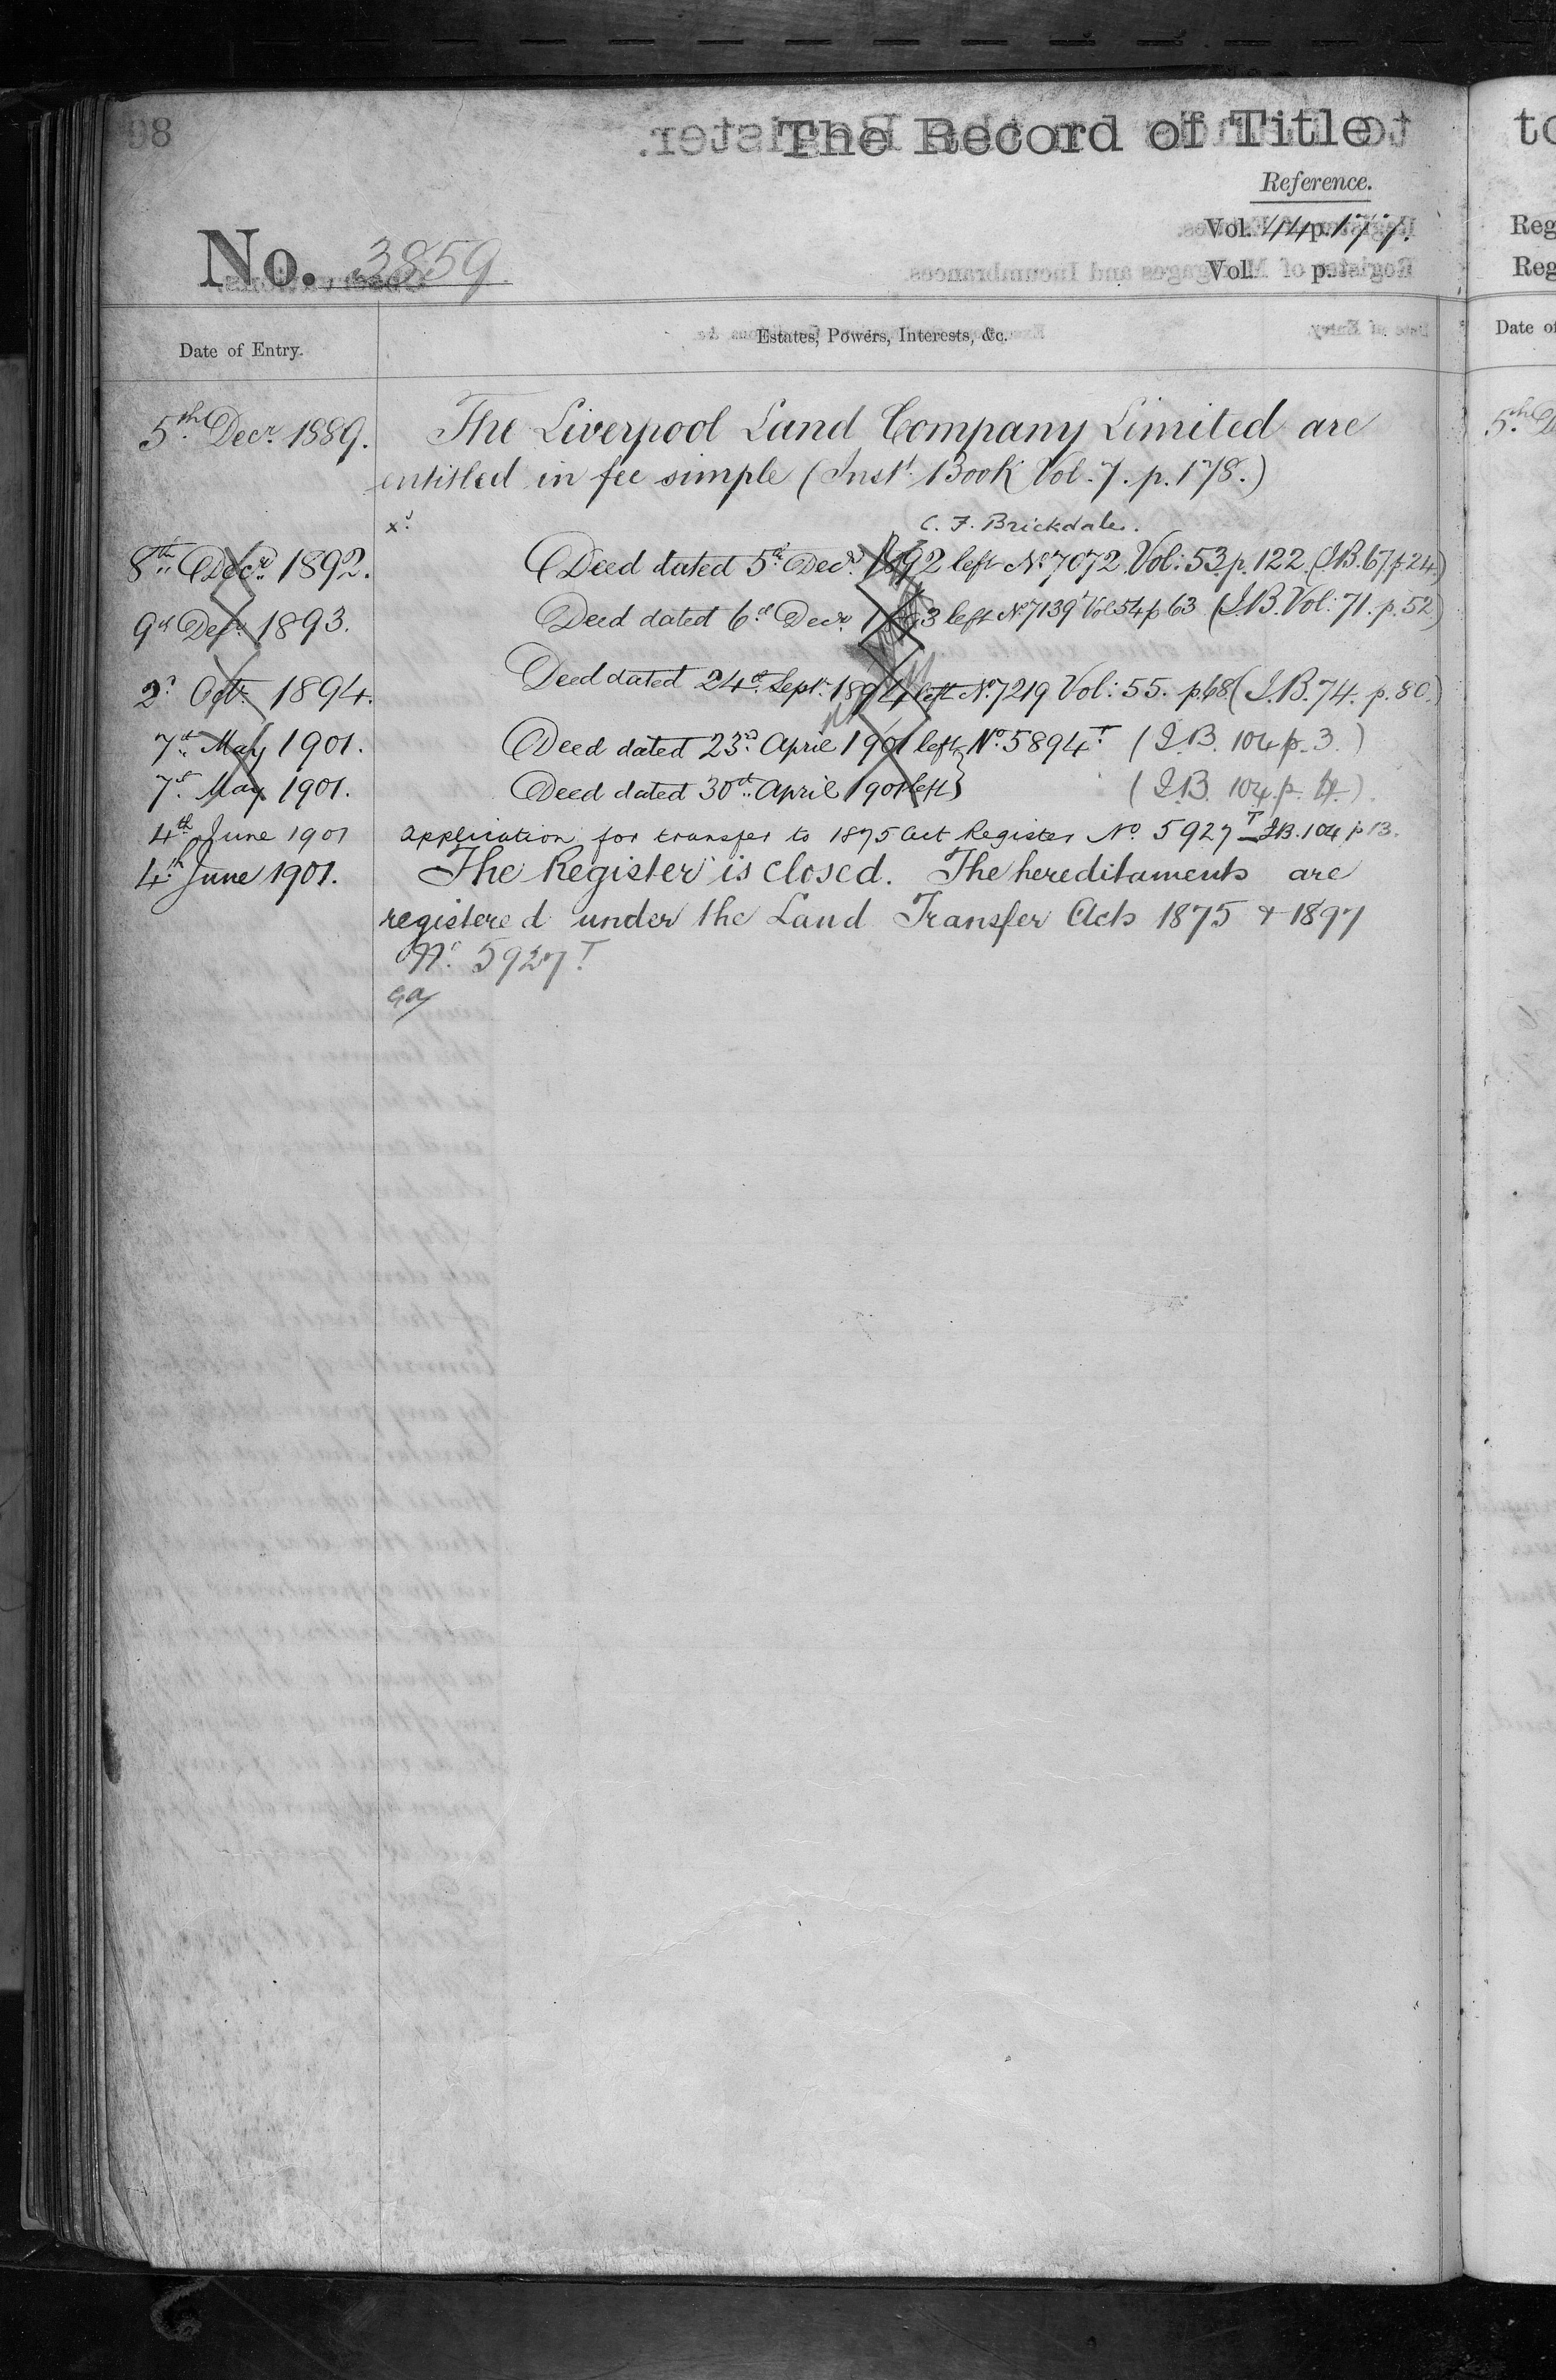 98
The Record of Title
Reference.
No. 3859
Vol. 44 p. 177.
Vol. p.
Date of Entry.
Estates, Powers, Interests, &c.
5th Decr. 1889. The Liverpool Land Company Limited are
entitled in fee simple (Inst. Book Vol. 7. p. 178.)
C. F. Brickdale.
8th Decr. 1892. Deed dated 5th Decr. 1892 left No. 7072 Vol: 53 p. 122 (I.B. 67 p 24)
9th Decr. 1893. Deed dated 6th Decr. 1893 left No. 7139 Vol 54 p 63 (I.B. Vol: 71. p. 52)
2d Octr. 1894. Deed dated 24th Septr. 1894 left No. 7219 Vol: 55. p. 68 (I.B. 74. p. 80.)
7th May 1901. Deed dated 23rd April 1901 left } No. 5894 T (I.B. 104 p. 3.)
7th May 1901. Deed dated 30th April 1901 left } (I.B. 104 p. 4.)
4th June 1901 Application for transfer to 1875 Act Register No. 5927 T I.B. 104 p 13.
4th June 1901. The Register is closed. The hereditaments are
registered under the Land Transfer Acts 1875 & 1897
No. 5927 T
to
Reg
Reg
Date of
5th D